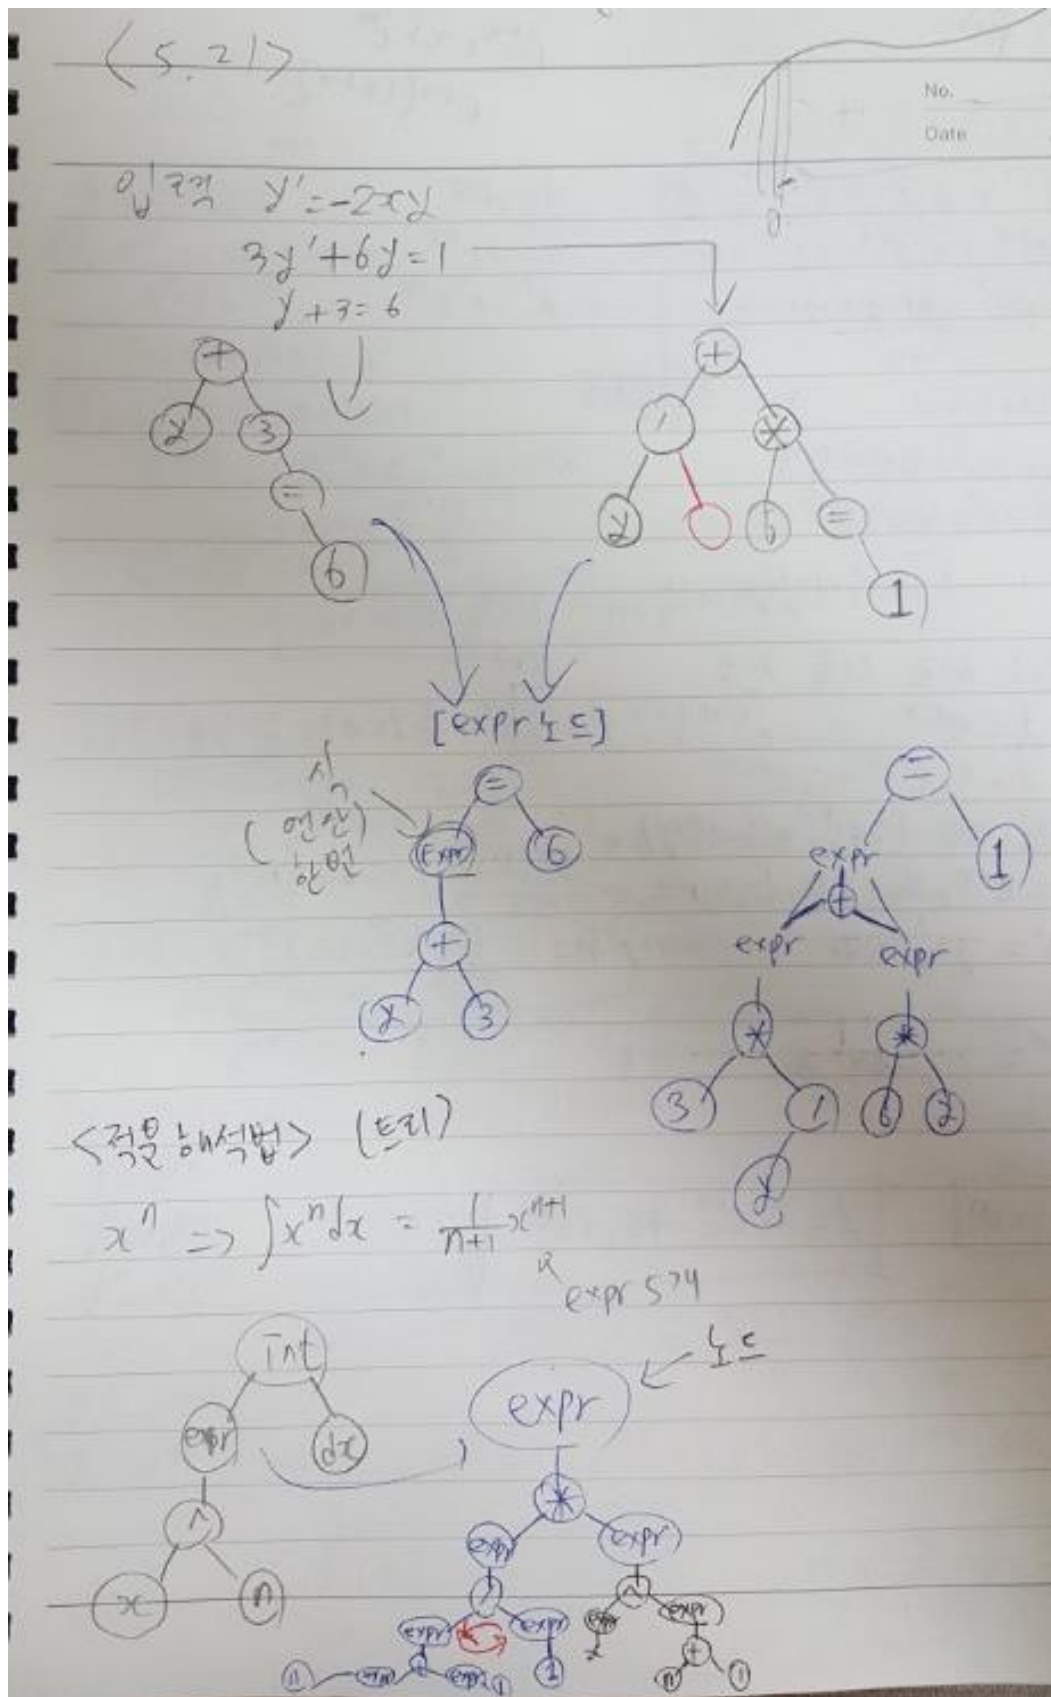 <5.21>
No.
Date
입력 y' = -2xy
3y' + 6y = 1
y + 3 = 6
+
+
y 3
' *
=
y 6 =
6
1
[expr 노드]
식
=
=
(연산)
항 변
expr 6
expr 1
+
+
expr expr
y 3
* *
3 ' 6 y
y
<적분 해석법> (트리)
x^n => ∫x^n dx = 1/(n+1) x^(n+1)
expr 구성
int
노드
expr
expr dx
*
^
expr expr
x n
/ ^
expr expr expr expr
+ 1 x +
n expr expr 1 n 1